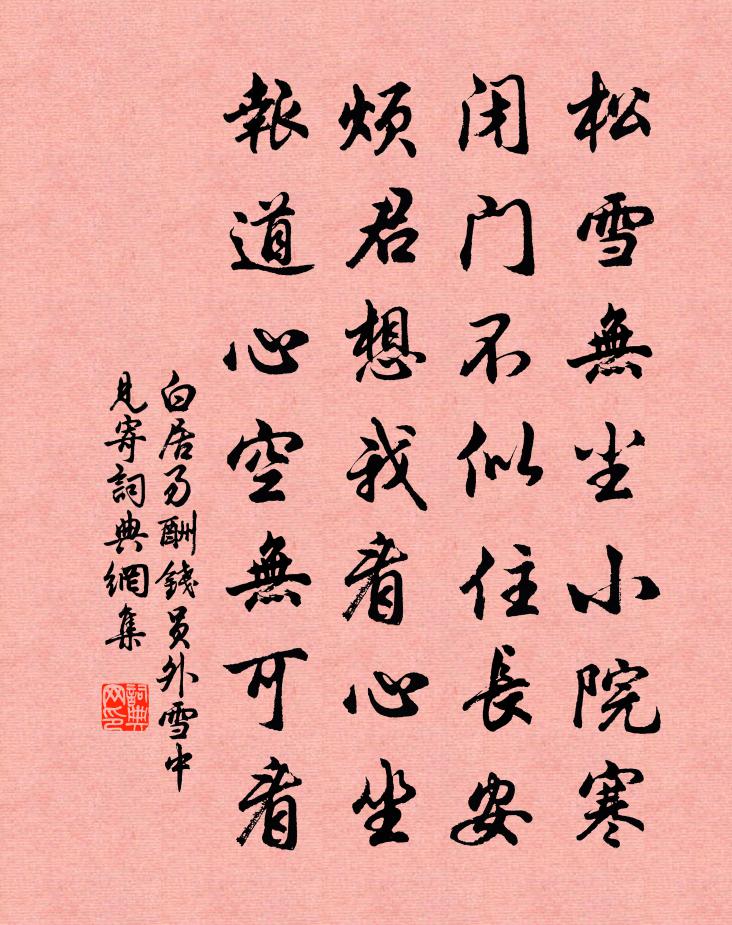 松雪無尘小院寒
闭门不似住長安
煩君想我看心坐
報道心空無可看
白居易酬錢員外雪中
見寄詞典網集
詞典
网印